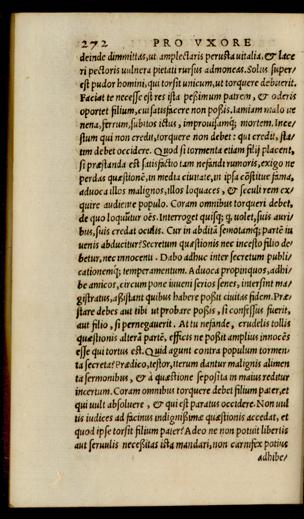 272 PRO VXORE
deinde dimittas, ut amplectaris perusta uitalia, & lace
ri pectoris uulnera pietati rursus admoneas. Solus super/
est pudor homini, qui torsit unicum, ut torquere debuerit.
Faciat te necesse est res ista pessimum patrem, & oderis
oportet filium, cui satisfacere non possis. Iam iam malo ue
nena, ferrum, subitos ictus, improuisamq; mortem. Ince/
stum qui non credit, torquere non debet: qui credit, sta/
tim debet occidere. Quod si tormenta etiam filij placent,
si præstanda est satisfactio tam nefandi rumoris, exigo ne
perdas quæstionē, in media ciuitate, in ipsa cōstitue fama,
aduoca illos malignos, illos loquaces, & seculi rem ex/
quire audiente populo. Coram omnibus torqueri debet,
de quo loquūtur oēs. Interroget quisq; q̃ uolet, suis auri/
bus, suis credat oculis. Cur in abditā semotamq; partē iu
uenis abducitur? Secretum quæstionis nec incesto filio de/
betur, nec innocenti. Dabo adhuc inter secretum publi/
cationemq́; temperamentum. Aduoca propinquos, adhi/
be amicos, circum pone iuueni serios senes, intersint ma/
gistratus, assistant quibus habere possit ciuitas fidem. Præ/
stare debes aut tibi ut probare possis, si confessus fuerit,
aut filio, si pernegauerit. At tu nefande, crudelis tollis
quæstionis alterā partē, efficis ne possit amplius innocēs
esse qui tortus est. Quid agunt contra populum tormen/
ta secreta? Prædico, testor, iterum dantur malignis alimen
ta sermonibus, & à quæstione seposita in maius reditur
incertum. Coram omnibus torquere debet filium pater, et
qui uult absoluere, & qui est paratus occidere. Non uul
tis iudices ad facinus indignissimæ quæstionis accedat, et
quod ipse torsit filium pater? Adeo ne non potuit libertis
aut seruulis necessitas ista mandari, non carnifex potius
adhibe/